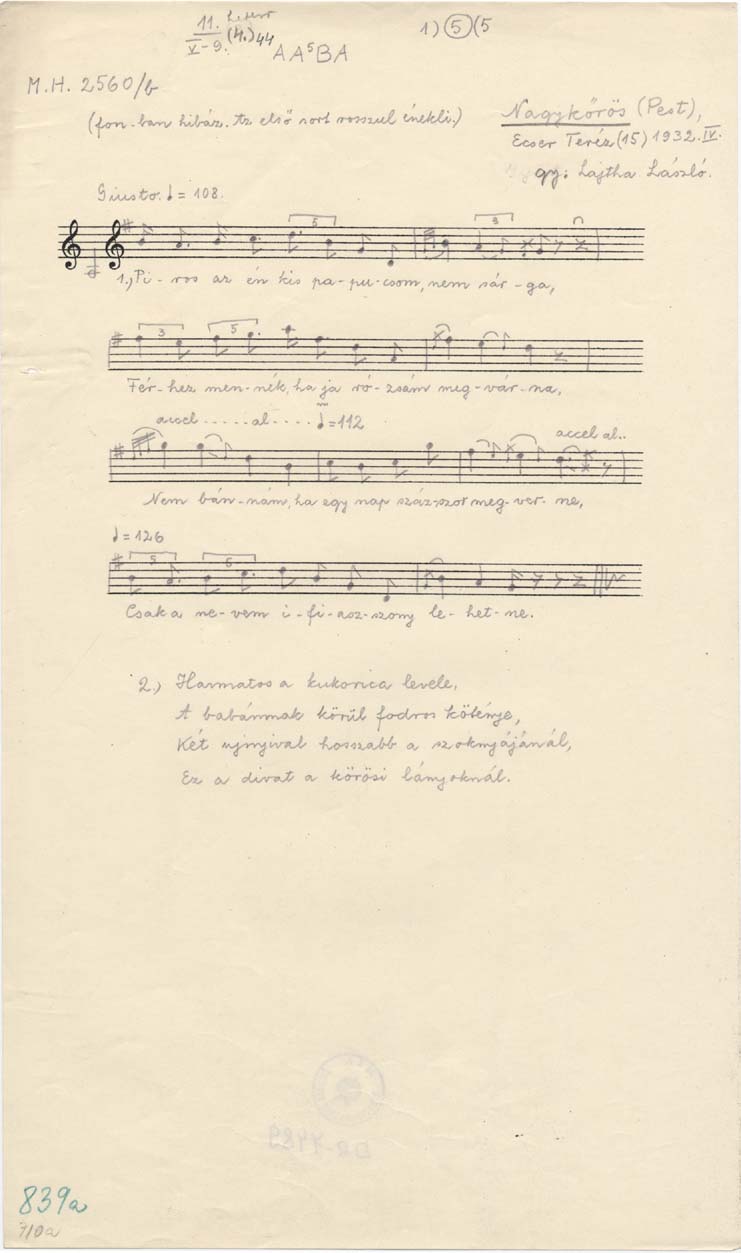 11.
V-9. (4.) 44
1) 5 (5
A A⁵ B A
M.H. 2560/b
(fon-ban hibáz. Az első sort rosszul énekli.)
Nagykőrös (Pest),
Ecser Teréz (15) 1932. IV.
gy: Lajtha László.
Giusto. ♩ = 108.
5
3
1.) Pi - ros az én kis pa - pu - csom, nem sár - ga,
3
5
Fér - hez men - nék, ha ja ró - zsám meg - vár - na,
accel ..... al .... ♩ = 112
accel al..
Nem bán - nám, ha egy nap száz - szor meg - ver - ne,
♩ = 126
5
5
Csak a ne - vem i - fi - asz - szony le - het - ne.
2.) Harmatos a kukorica levele,
A babámnak körül fodros köténye,
Két ujnyival hosszabb a szoknyájánál,
Ez a divat a körösi lányoknál.
839a
710a